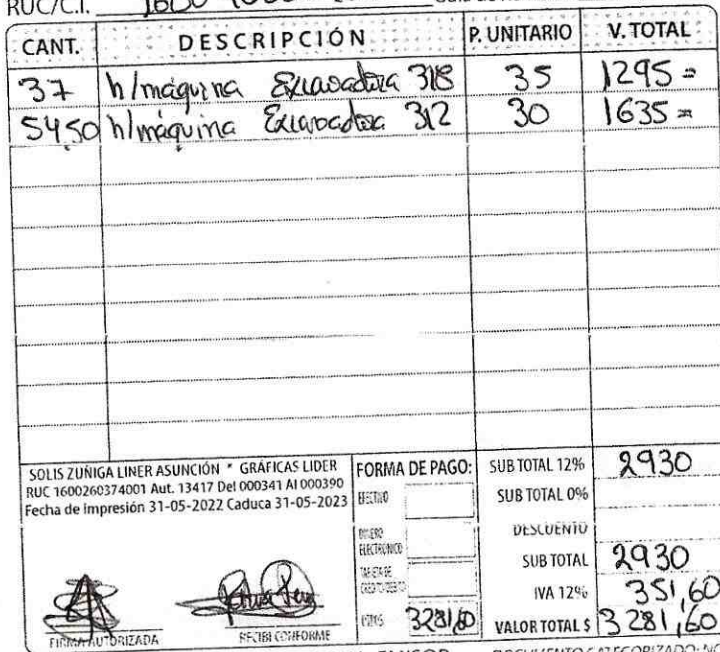 RUC/C.I.
CANT. DESCRIPCIÓN P. UNITARIO V. TOTAL
37 h/máquina Excavadora 318 35 1295=
54,50 h/máquina Excavadora 312 30 1635=
SOLIS ZUÑIGA LINER ASUNCIÓN * GRÁFICAS LIDER
RUC 1600260374001 Aut. 13417 Del 000341 Al 000390
Fecha de impresión 31-05-2022 Caduca 31-05-2023
FORMA DE PAGO:
EFECTIVO
DINERO ELECTRÓNICO
TARJETA DE CRÉDITO/DÉBITO
OTROS 3281,60
SUB TOTAL 12% 2930
SUB TOTAL 0%
DESCUENTO
SUB TOTAL 2930
IVA 12% 351,60
VALOR TOTAL $ 3281,60
FIRMA AUTORIZADA
RECIBI CONFORME
DOCUMENTO CATEGORIZADO: NO